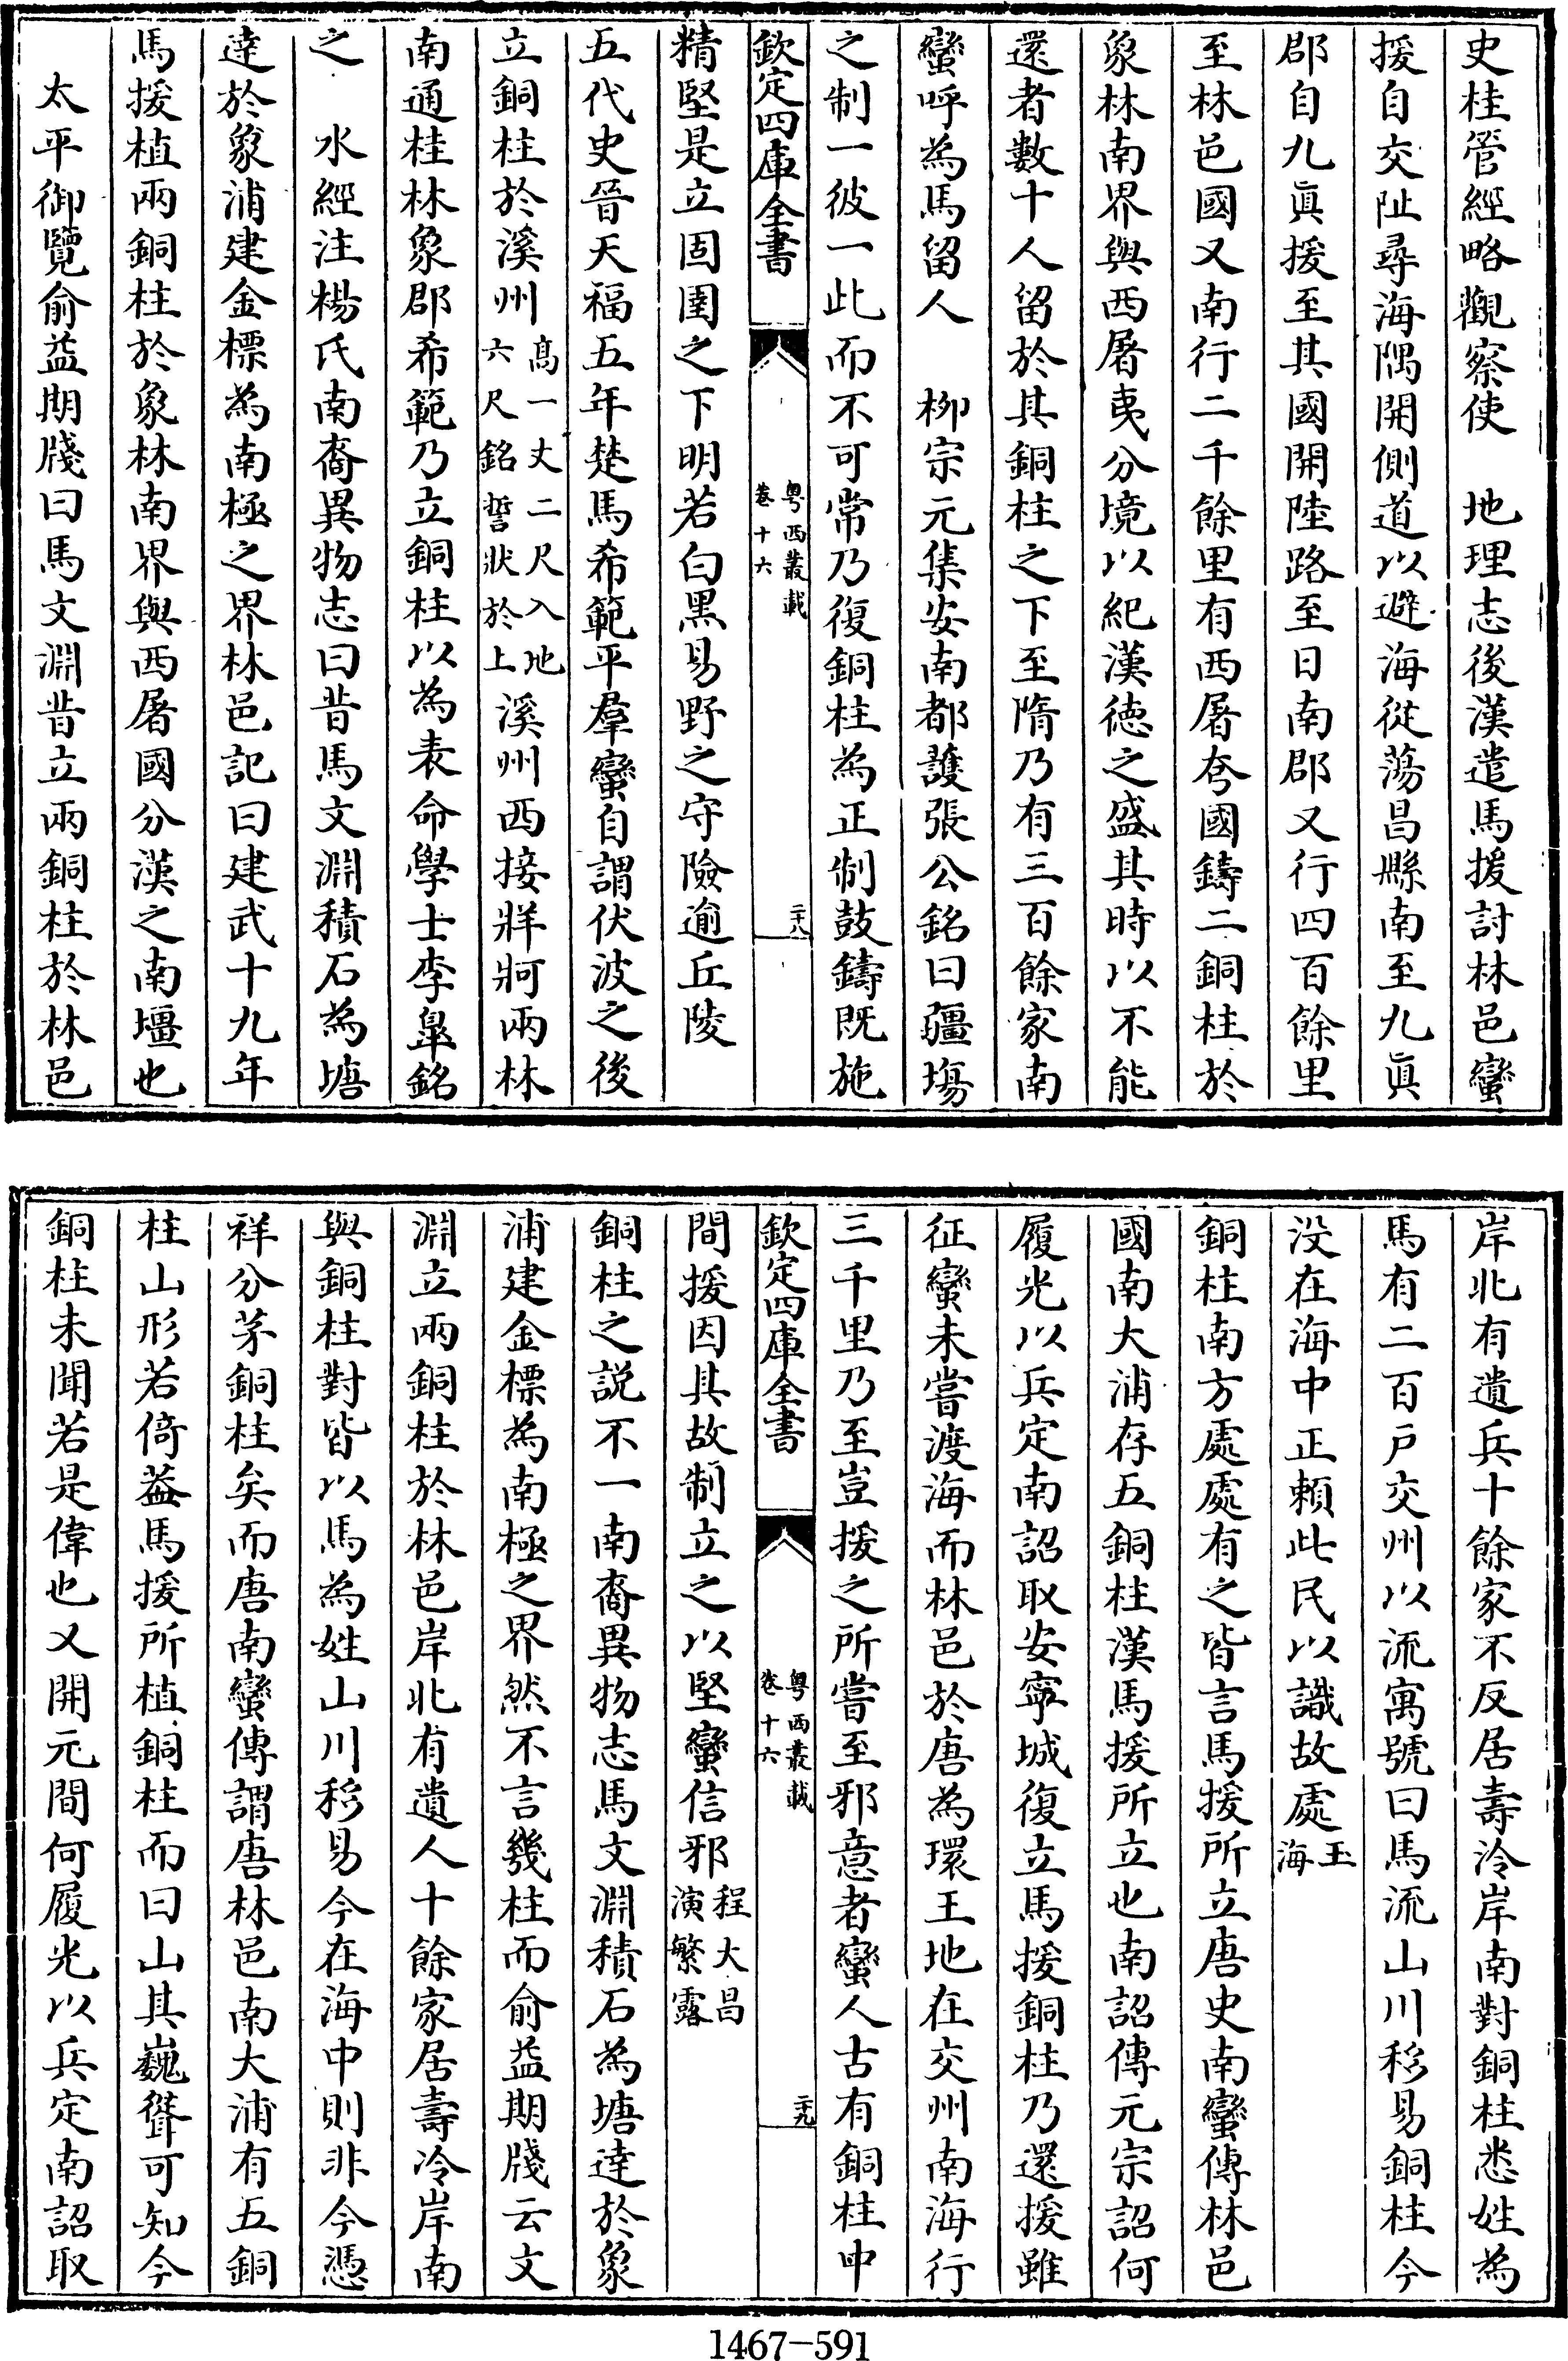 史桂管經略觀察使　地理志後漢遣馬援討林邑蠻
援自交阯尋海隅開側道以避海從蕩昌縣南至九眞
郡自九眞援至其國開陸路至日南郡又行四百餘里
至林邑國又南行二千餘里有西屠夸國鑄二銅柱於
象林南界與西屠夷分境以紀漢徳之盛其時以不能
還者數十人留於其銅柱之下至隋乃有三百餘家南
蠻呼為馬留人　柳宗元集安南都護張公銘曰疆埸
之制一彼一此而不可常乃復銅柱為正制鼓鑄既施
欽定四庫全書
粤西叢載
卷十六
二十八
精堅是立固圉之下明若白黑易野之守險逾丘陵
五代史晉天福五年楚馬希範平羣蠻自謂伏波之後
立銅柱於溪州高一丈二尺入地六尺銘誓狀於上溪州西接牂牁兩林
南通桂林象郡希範乃立銅柱以為表命學士李臯銘
之　水經注楊氏南裔異物志曰昔馬文淵積石為塘
達於象浦建金標為南極之界林邑記曰建武十九年
馬援植兩銅柱於象林南界與西屠國分漢之南壃也
太平御覽俞益期牋曰馬文淵昔立兩銅柱於林邑
岸北有遺兵十餘家不反居壽泠岸南對銅柱悉姓為
馬有二百戸交州以流寓號曰馬流山川移易銅柱今
没在海中正頼此民以識故處玉海
銅柱南方處處有之皆言馬援所立唐史南蠻傳林邑
國南大浦存五銅柱漢馬援所立也南詔傳元宗詔何
履光以兵定南詔取安寧城復立馬援銅柱乃還援雖
征蠻未嘗渡海而林邑於唐為環王地在交州南海行
三千里乃至豈援之所嘗至邪意者蠻人古有銅柱中
欽定四庫全書
粤西叢載
卷十六
二十九
間援因其故制立之以堅蠻信邪程大昌演繁露
銅柱之説不一南裔異物志馬文淵積石為塘達於象
浦建金標為南極之界然不言幾柱而俞益期牋云文
淵立兩銅柱於林邑岸北有遺人十餘家居壽冷岸南
與銅柱對皆以馬為姓山川移易今在海中則非今憑
祥分茅銅柱矣而唐南蠻傳謂唐林邑南大浦有五銅
柱山形若倚葢馬援所植銅柱而曰山其巍聳可知今
銅柱未聞若是偉也又開元間何履光以兵定南詔取
1467-591